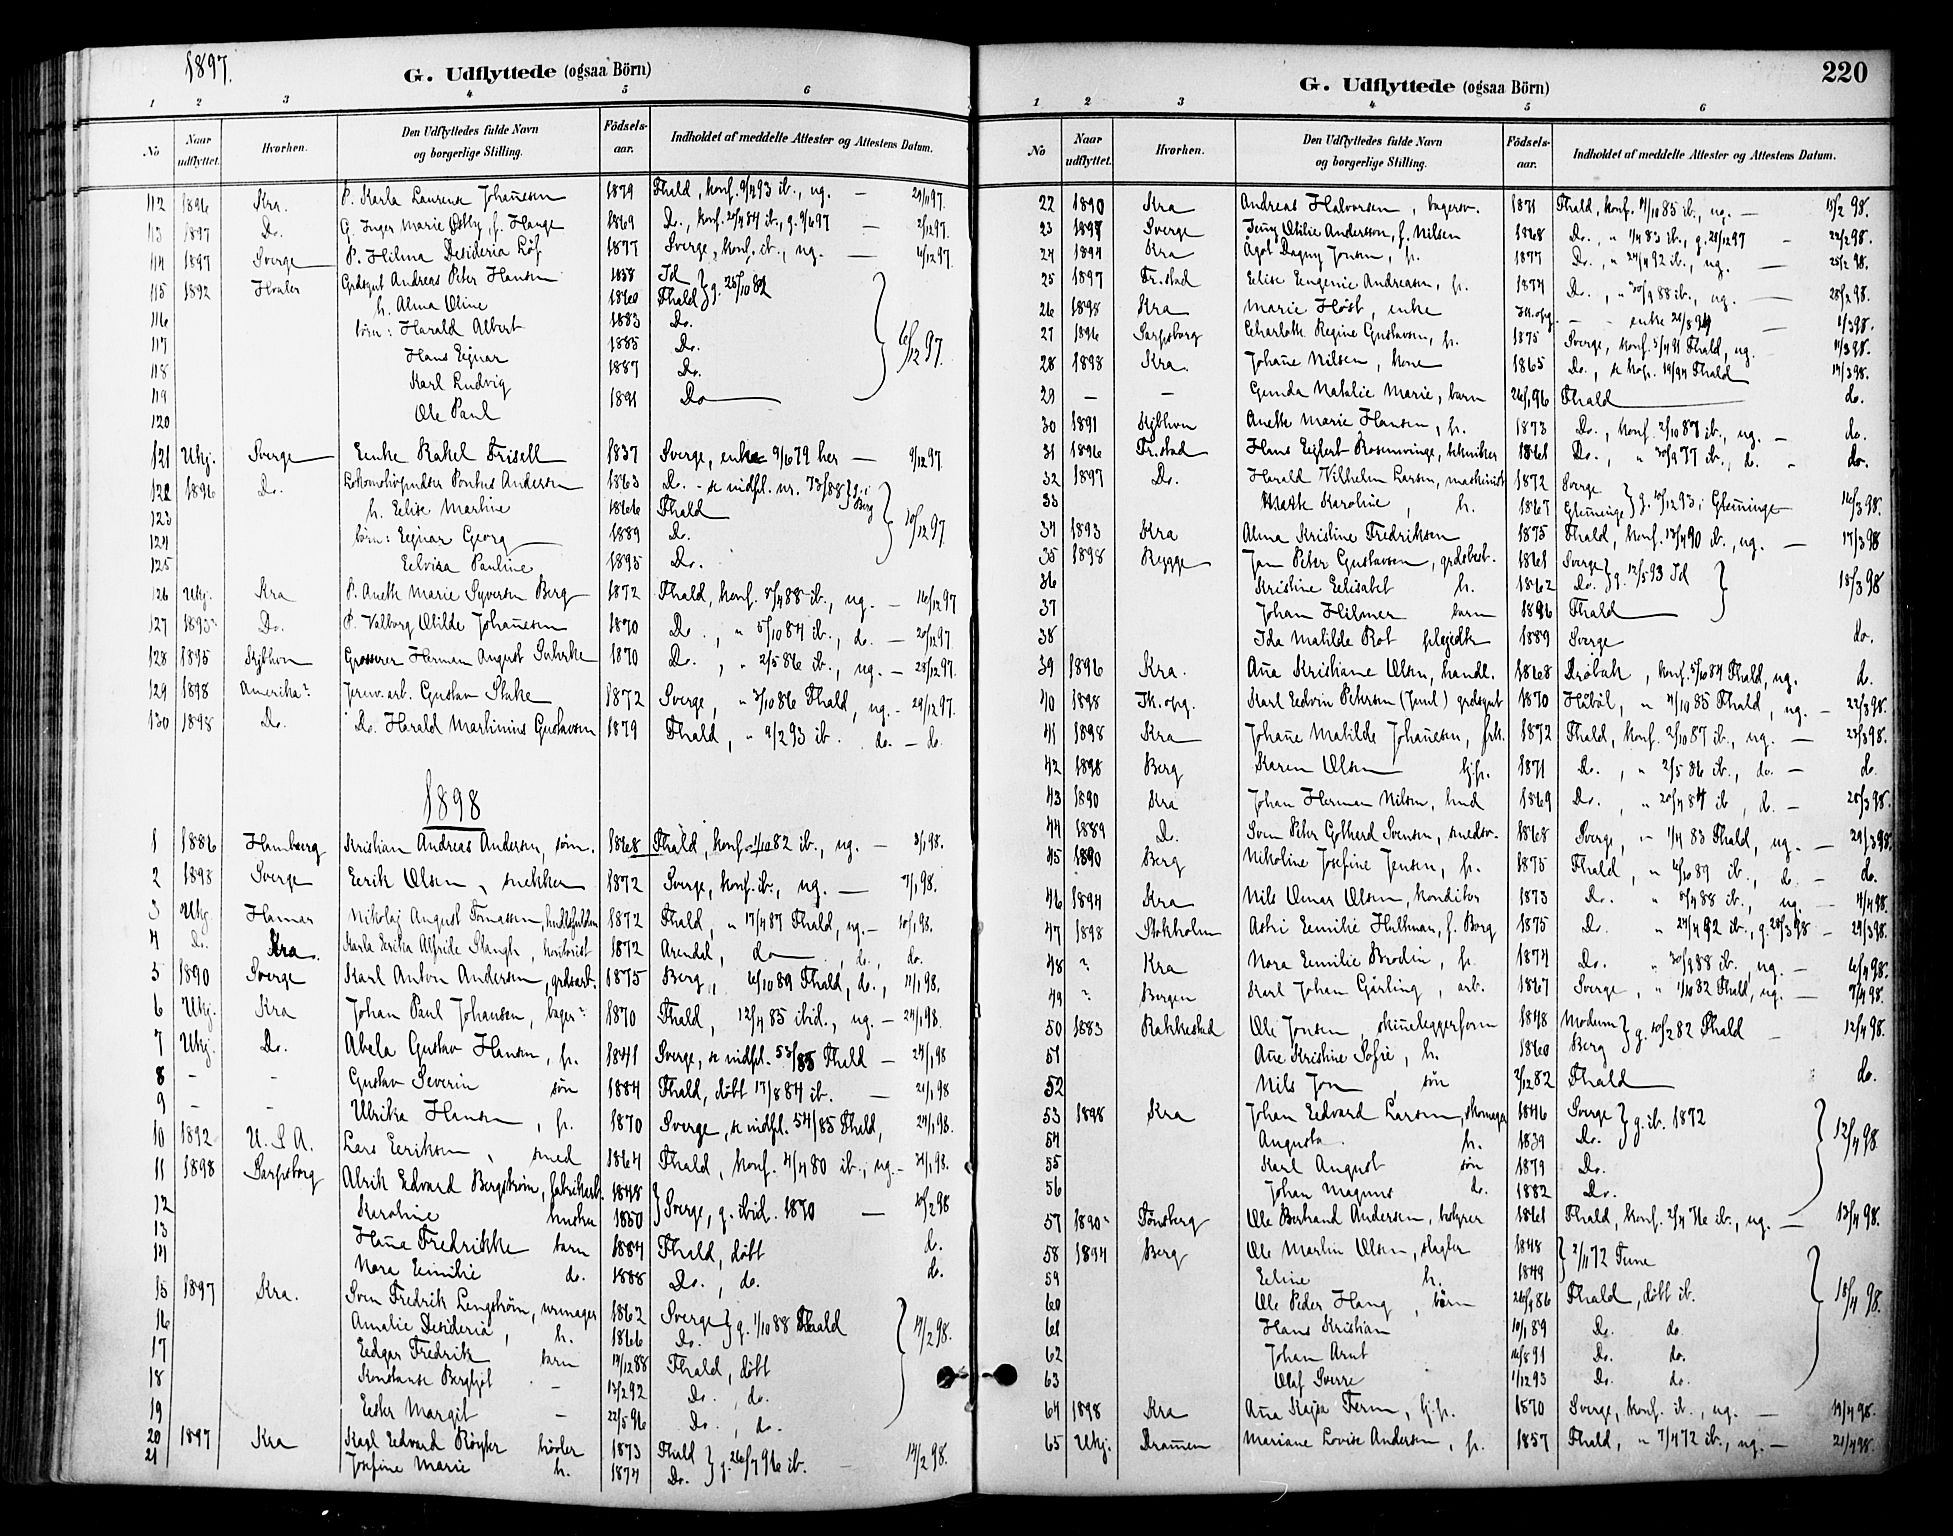 1897.
G. Udflyttede (ogsaa Börn)
1 2 3 4 5 6
No Naar udflyttet. Hvorhen. Den Udflyttedes fulde Navn og borgerlige Stilling. Födsels-aar. Indholdet af meddelte Attester og Attestens Datum.
112 1896 Kra. P. Karla Laurense Johan̄esen 1879 Fhald, konf. 9/4 93 ib., ug. — 29/11 97.
113 1897 Do. G. Inger Marie Østby, f. Hauge 1869 Do., konf. 20/4 84 ib., g. 9/6 97 — 2/12 97.
114 1897 Sverge P. Hilma Desideria Löf 1877 Sverge, konf. ib., ug. — 4/12 97.
115 1892 Hvaler Grdsgut Andreas Peter Hansen 1858 Id } g. 25/10 82
116 h. Alma Oline 1860 Fhald
117 börn: Harald Albert 1883 Do.
118 Hans Ejnar 1885 Do. 6/12 97.
119 Karl Ludvig 1887 Do.
120 Ole Paul 1891 Do
121 Ukj. Sverge Enke Rakel Frisell 1837 Sverge, enke 9/6 79 her — 9/12 97.
122 1896 Do. Lokomotivpudser Pontus Andersen 1863 Do. - se indfl. nr. 73/88 } g. i Berg
123 h. Elise Martine 1866 Fhald 10/12 97.
124 börn: Ejnar Georg 1889 Do.
125 Elvira Pauline 1895 Do.
126 Ukj. Kra P. Anette Marie Syversen Berg 1872 Fhald, konf. 8/4 88 ib., ug. — 16/12 97
127 1893 Do. P. Valborg Otilde Johan̄esen 1870 Do., " 5/10 84 ib., do. — 20/12 97.
128 1895 Kjbhvn Grosserer Herman August Suhrke 1870 Do., " 2/5 86 ib., ug. — 28/12 97.
129 1898 Amerika Jernv.arb. Gustav Stake 1872 Sverge, " 3/10 86 Fhald, ug. - 29/12 97.
130 1898 Do. Do. Harald Martinius Gustavsen 1879 Fhald, " 9/2 93 ib. do. — do.
1898
1 1886 Hamburg Kristian Andreas Andersen, söm. 1868 Fhald, konf. 1/10 82 ib., ug. — 3/1 98.
2 1898 Sverge Erik Olsen, snekker 1872 Sverge, konf. ib., ug. — 7/1 98.
3 Ukj. Hamar Nikolaj August Tomassen, 1872 Fhald, " 17/4 87 Fhald, ug. — 10/1 98.
4 Do. Kra. Karla Erika Alfride Stangh, 1872 Arendal, do , do., do.
5 1890 Sverge Karl Anton Andersen, grdsarb. 1875 Berg, 6/10 89 Fhald, do., 11/1 98.
6 Ukj. Kra Johan Paul Johansen, bager 1870 Fhald, 12/4 85 ibid., ug. — 24/1 98.
7 Ukj. Do. Abela Gustav Hansen, fr. 1841 Sverge, se indfl. 53/85 Fhald — 24/1 98
8 – - Gustav Severin sön 1884 Fhald, döbt 17/8 84 ib. — 24/1 98
9 – - Ulrika Hansen, fr. 1870 Sverge, se indfl. 54/85 Fhald, 24/1 98.
10 1892 U. S. A. Lars Eriksen, smed 1864 Fhald, konf. 4/4 80 ib., ug. — 31/1 98.
11 1898 Sarpsborg Alrik Edvard Bergström, fabrikarb. 1848 } Sverge, g. ibid. 1870 — 10/2 98
12 Karoline hustru 1850
13 Han̄a Fredrikke barn 1884 Fhald, döbt do.
14 Nora Emilie do. 1888 Do., do. do.
15 1897 Kra. Sven Fredrik Lengström, urmager 1862 Sverge } g. 1/10 88 Fhald
16 Amalie Desideria, h. 1866 Do. 14/2 98.
17 Edgar Fredrik barn 14/12 88 Fhald, döbt
18 Konstanse Bergljot – 13/2 92 Do., do.
19 Ester Margit – 22/5 96 Do., do.
20 1897 Kra Karl Edvard Röyster hövler 1873 Fhald } g. 26/7 96 ib. — 14/2 98.
21 Josefine Marie h. 1874 Do.
G. Udflyttede (ogsaa Börn)
220
1 2 3 4 5 6
No Naar udflyttet. Hvorhen. Den Udflyttedes fulde Navn og borgerlige Stilling. Födsels-aar. Indholdet af meddelte Attester og Attestens Datum.
22 1890 Kra Andreas Halvorsen, bagersv. 1871 Fhald, konf. 4/10 85 ib., ug. — 15/2 98.
23 1897 Sverge Jenny Otilie Andersson, f. Nilsen 1868 Do., " 1/4 83 ib., g. 28/12 97 – 22/2 98.
24 1894 Kra Agot Dagny Jonsen, fr. 1877 Do., " 24/4 92 ib., ug. — 25/2 98.
25 1897 Fr.stad Elise Eugenie Andreasen, fr. 1874 Do., " 30/9 88 ib., ug. — 28/2 98.
26 1898 Kra Marie Höst, enke — — enke 21/8 94 — 1/3 98.
27 1896 Sarpsborg Charlotte Regine Gustavsen, fr. 1875 Sverge, konf. 5/4 91 Fhald, ug. 11/3 98.
28 1898 Kra. Johan̄e Nilsen, kone 1865 Do., se 19/94 Fhald 14/3 98.
29 — – Gunda Natalie Marie, barn 26/1 96 Fhald do.
30 1891 Kjbhvn Anette Marie Hansen, fr. 1873 Do., konf. 2/10 87 ib., ug. – do.
31 1896 Fr.stad Hans Ejlert Rosenvinge, tekniker 1861 Do., " 30/9 77 ib., do. – do.
32 1897 Do. Harald Vilhelm Larsen, maskinist 1872 Sverge } g. 10/12 93 i Glem̄inge 16/3 98.
33 Karoline, h. 1867 Glem̄inge
34 1893 Kra Alma Kristine Fredriksen 1875 Fhald, konf. 13/4 90 ib., ug. — 17/3 98
35 1898 Rygge Jan Peter Gustavsen, grdsbest. 1861 Sverge } g. 12/5 93 Id
36 Kristine Elisabet h. 1862 Do. 18/3 98
37 Johan Hilmer barn 1896 Fhald
38 Ida Matilde Rot plejedtr. 1889 Sverge do.
39 1896 Kra. An̄a Kristiane Olsen, handl. 1868 Dröbak, konf. 5/10 84 Fhald, ug. do.
40 1898 Tk. opg. Karl Edvin Petersen (Juul) grdsgut 1870 Häböl, " 4/10 85 Fhald, ug. — 22/3 98.
41 1898 Kra Johan̄e Matilde Johan̄esen, frk. 1872 Fhald, konf. 2/10 87 ib., ug. — 23/3 98.
42 1898 Berg Karen Olsen tj.p. 1871 Do., " 2/5 86 ib., do. — do.
43 1890 Kra Johan Herman Nilsen, bud 1869 Do. " 20/4 84 ib, do. — 28/3 98.
44 1889 Do. Sven Peter Gotherd Svensen, smedsv. 1868 Sverge, " 1/4 83 Fhald, ug. — 29/3 98.
45 1890 Berg Nikoline Josefine Jensen, fr. 1875 Fhald, " 6/10 89 ib., do. — do.
46 1894 Kra Nils Omar Olsen, konditor 1873 Do. " 8/4 88 ib., ug. — 4/4 98.
47 1898 Stokholm Astri Emilie Hultman, f. Borg 1875 Do. " 24/4 92 ib., g. 28/3 98 — 29/3 98.
48 ? Kra Nora Emilie Brodin, fr. 1874 Do. " 30/9 88 ib., ug. — 6/4 98.
49 ? Bergen Karl Johan Gärling, arb. 1867 Sverge, " 1/10 82 Fhald, ug. — 7/4 98.
50 1883 Rakkestad Ole Jonsen, skin̄eleggerform 1848 Modum } g. 10/2 82 Fhald — 12/4 98.
51 An̄e Kristine Sofie, h. 1860 Berg
52 Nils Jon, sön 2/12 82 Fhald do.
53 1898 Kra Johan Edvard Larsen, skomager 1846 Sverge } g. ib. 1872
54 Augusta h. 1839 Do. 12/4 98.
55 Karl August sön 1879 Do.
56 Johan Magnus do. 1882 Do.
57 1890 Tönsberg Ole Bertrand Andersen, bokfører 1861 Fhald, konf. 2/4 76 ib., ug. — 13/4 98.
58 1894 Berg Ole Martin Olsen, slagter 1848 } 2/11 72 Tune
59 Eline h. 1849
60 Ole Peder Haug, börn 26/9 86 Fhald, döbt ib. 18/4 98.
61 Hans Kristian 10/1 89 Do. do.
62 Johan Arnt 16/8 91 Do. do.
63 Olaf Sverre 1/12 93 Do. do.
64 1898 Kra An̄a Kajsa Ferm, tj.p. 1870 Sverge, konf. ib., ug. — 19/4 98.
65 Ukj. Dram̄en Mariane Lovise Andersen, fr. 1857 Fhald, " 7/4 72 ib., ug. — 21/4 98.